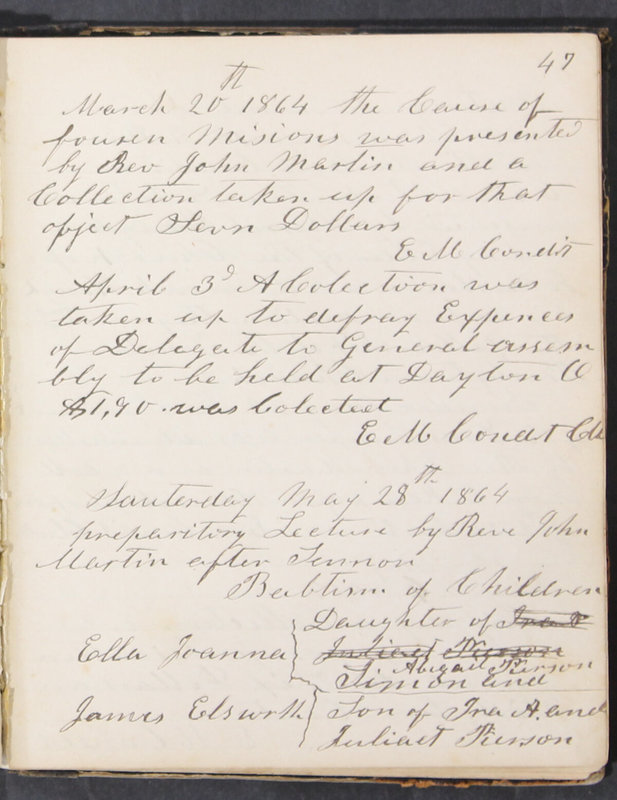 47
March 20th 1864 the Cause of
fouren Misions was presented
by Rev John Martin and a
Collection taken up for that
opject Sevn Dollars
E M Condit
April 3d A Colection was
taken up to defray Expences
of Delegate to General assem
bly to be held at Dayton O
$1,90. was Colected
E M Condit Clk
Sauterday May 28th 1864
preparitory Lecture by Reve John
Martin after Sermon
Babtism of Children
Ella Joanna Daughter of Ira A
Juliaet Pierson
Abigail Pierson
Simon and
James Elsworth Son of Ira A. and
Juliaet Pierson